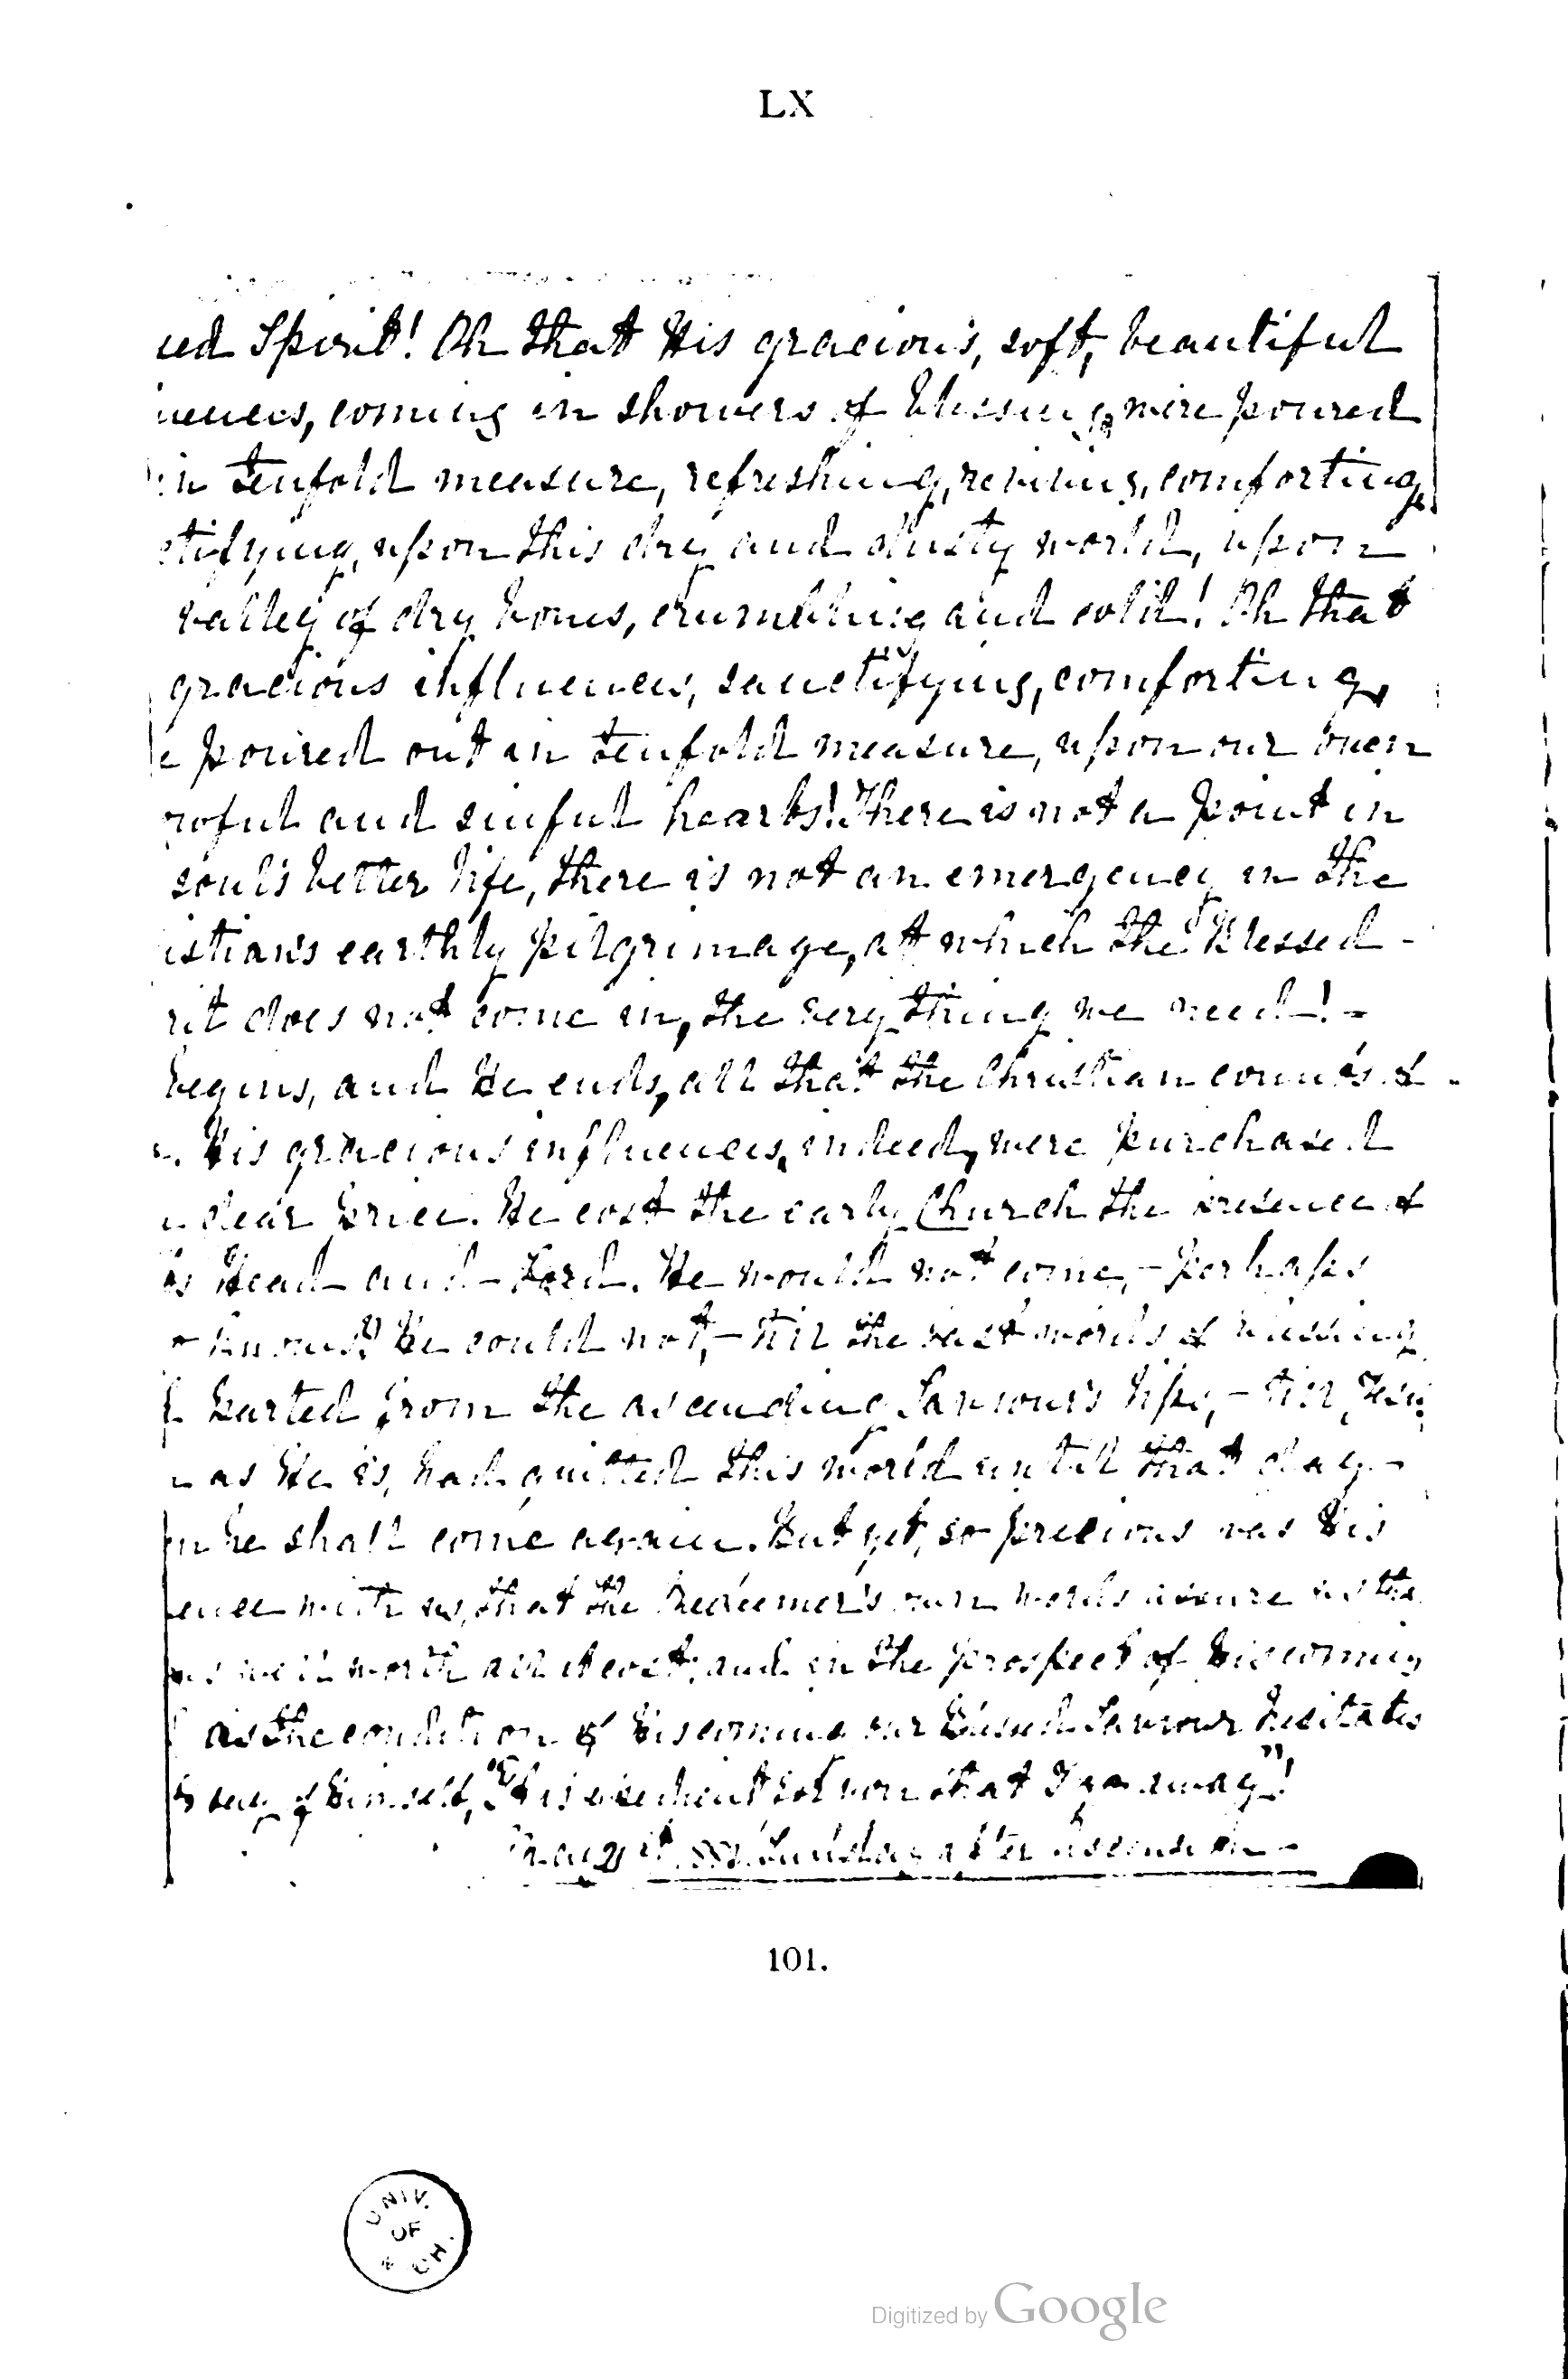 LX
ed Spirit! Oh that His gracious, soft, beautiful
uences, coming in showers of blessing, were poured
in tenfold measure, refreshing, reviving, comforting,
ctifying, upon this dry and dusty world, upon
valley of dry bones, crumbling and cold! Oh that
gracious influences, sanctifying, comforting,
e poured out in tenfold measure, upon our own
rowful and sinful hearts! There is not a point in
soul's better life, there is not an emergency in the
istian's earthly pilgrimage, at which the Blessed
rit does not come in, the very thing we need! -
begins, and He ends, all that the Christian counts of
His gracious influences, indeed, were purchased
dear price. He cost the early Church the presence of
is Head and Lord. He would not come, - perhaps
He could not, - till the last words of blessing
parted from the ascending Saviour's lips, - till, Jesus
as He is, had quitted this world until that day -
en he shall come again. But yet, so precious was His
ence with us, that the Redeemer's own words assure us tha
as well worth all it cost; and in the prospect of His coming
as the condition of His coming our Blessed Saviour hesitates
say of Himself, "It is expedient for you that I go away"!
Sunday after Ascension -
101.
UNIV.
OF
Digitized by Google